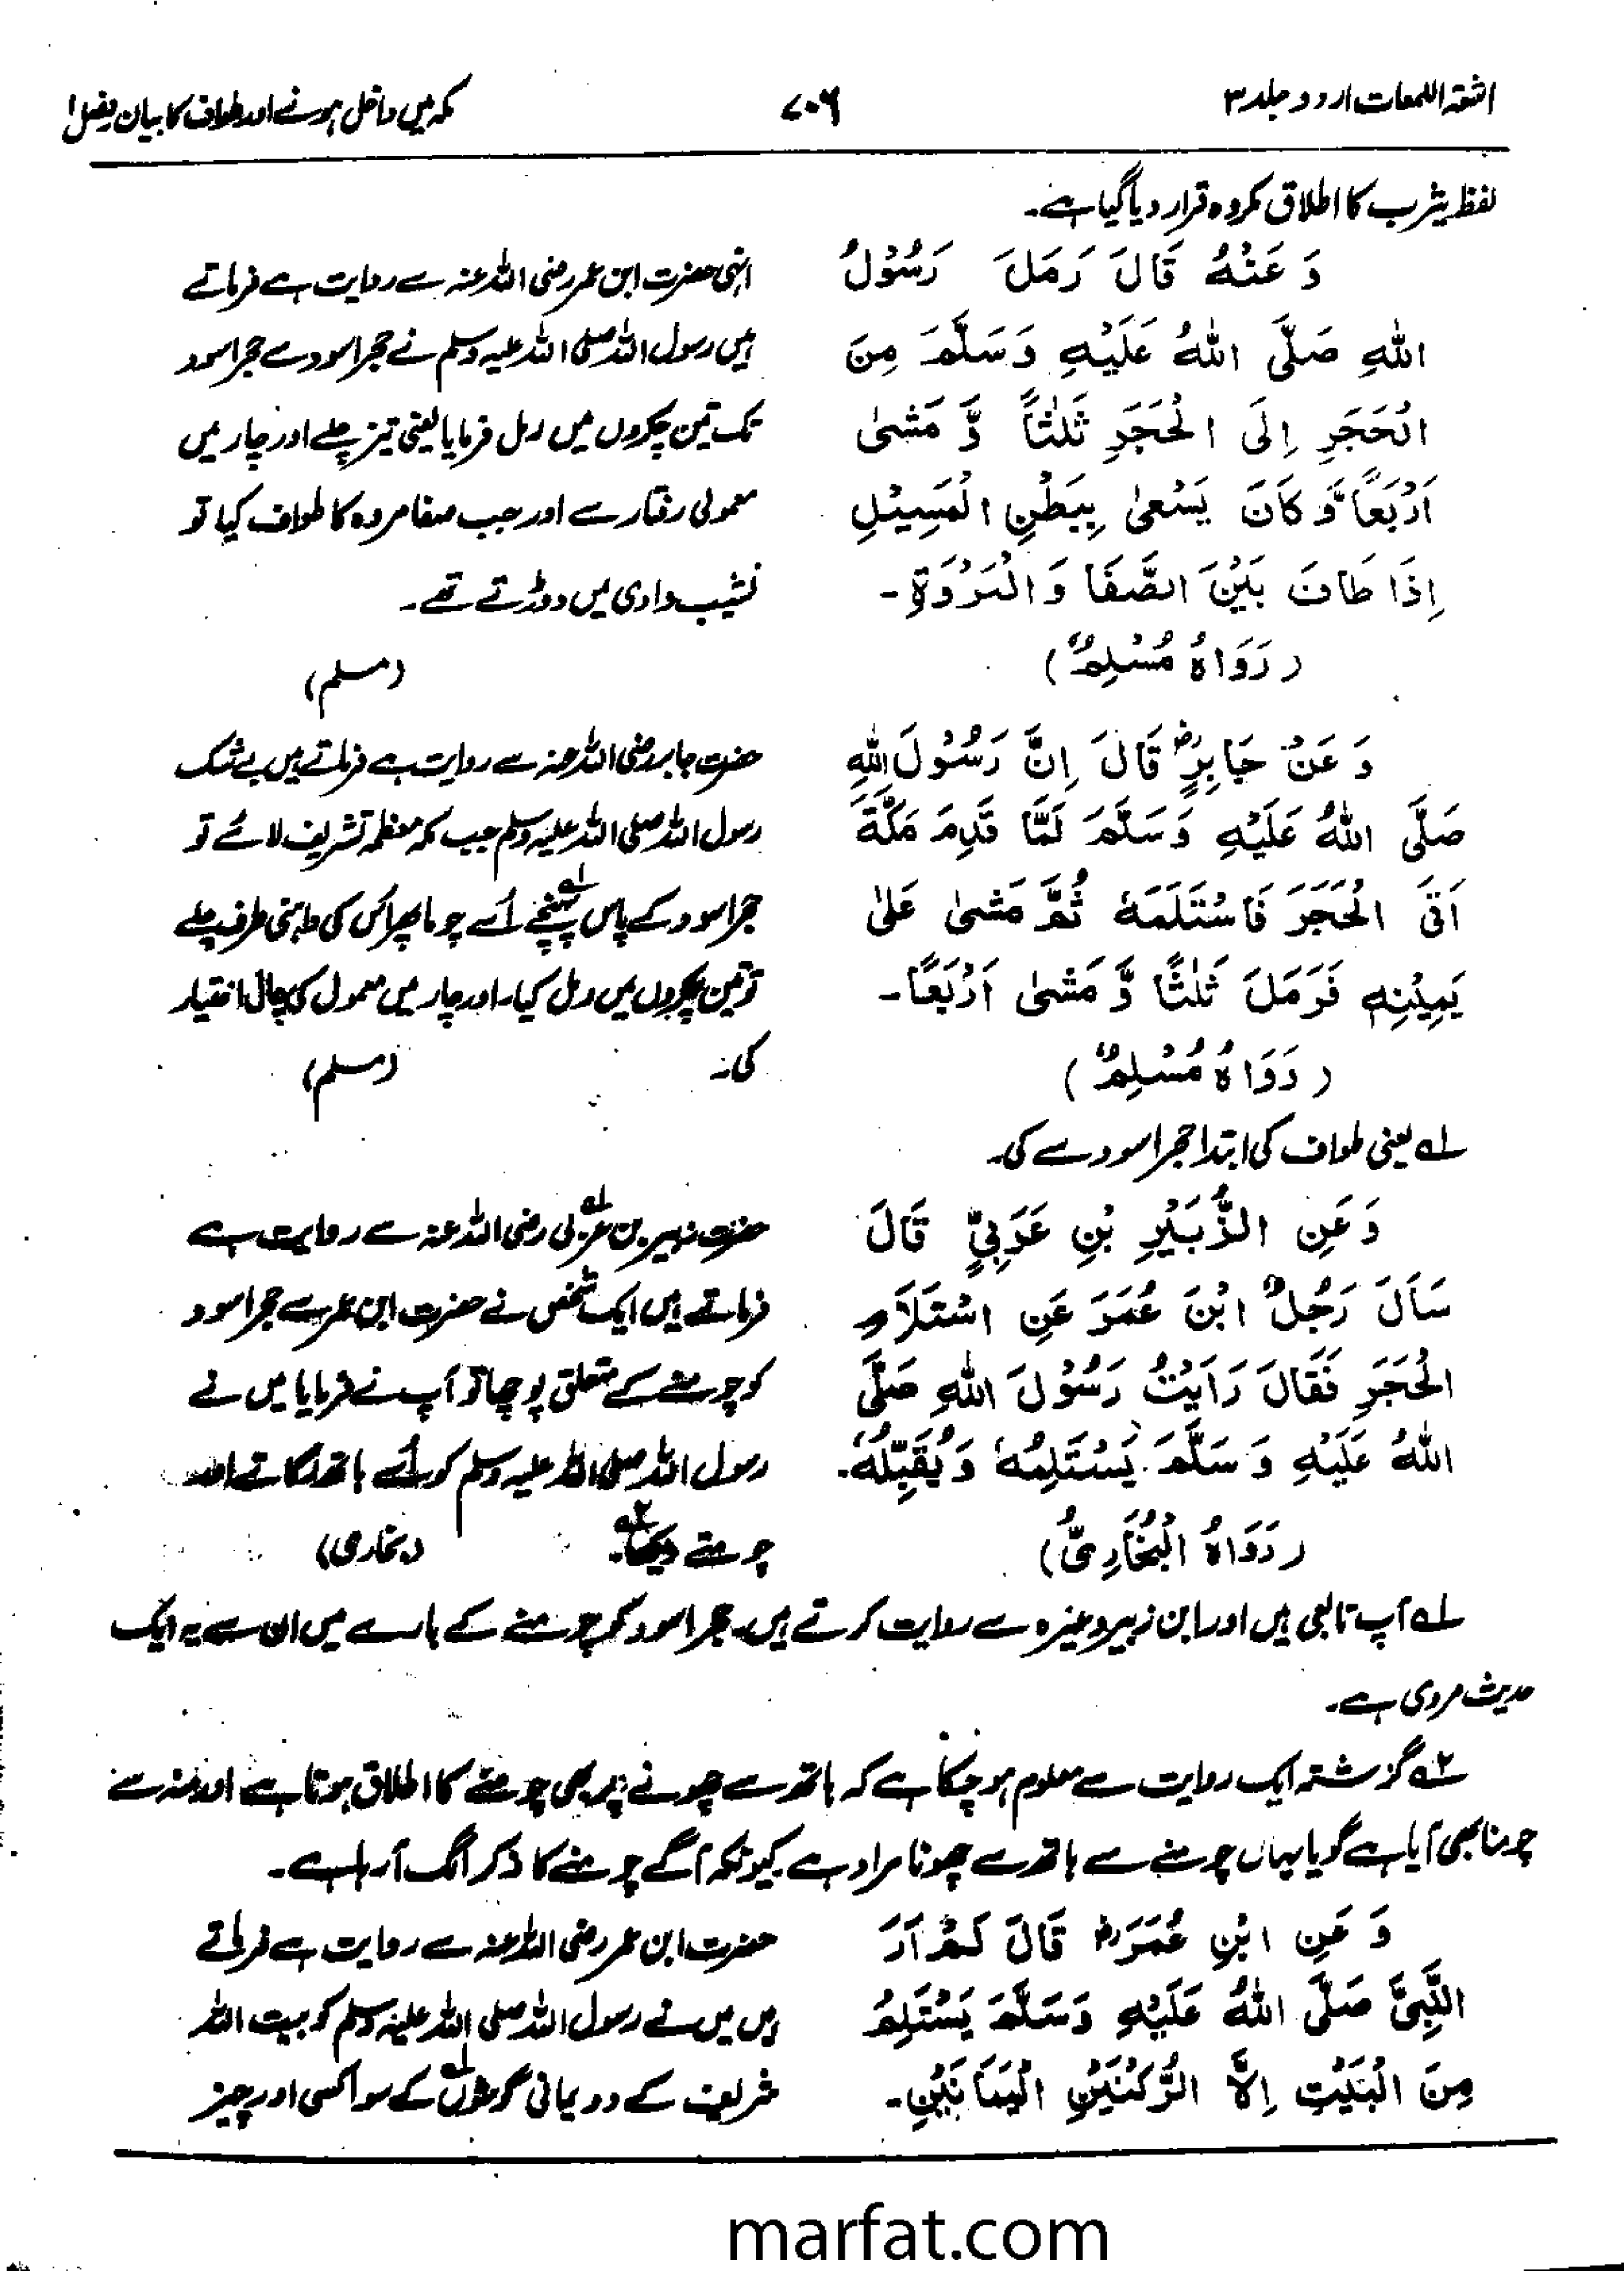 اشعۃ اللمعات اردو جلد ۳
۷۰۶
مکہ میں داخل ہونے اور طواف کا بیان فصل ۱
لفظ یثرب کا اطلاق مکروہ قرار دیا گیا ہے۔
وَ عَنْهُ قَالَ رَمَلَ رَسُوْلُ
اللهِ صَلَّى اللهُ عَلَيْهِ وَسَلَّمَ مِنَ
الْحَجَرِ اِلَى الْحَجَرِ ثَلٰثًا وَّ مَشٰى
اَرْبَعًا وَّكَانَ يَسْعٰى بِبَطْنِ الْمَسِيْلِ
اِذَا طَافَ بَيْنَ الصَّفَا وَالْمَرْوَةِ ـ
(رَوَاهُ مُسْلِمٌ)
انہی حضرت ابن عمر رضی اللہ عنہ سے روایت ہے فرماتے
ہیں رسول اللہ صلی اللہ علیہ وسلم نے حجر اسود سے حجر اسود
تک تین چکروں میں رمل فرمایا یعنی تیز چلے اور چار میں
معمولی رفتار سے اور جب صفا مروہ کا طواف کیا تو
نشیب وادی میں دوڑتے تھے۔
(مسلم)
وَ عَنْ جَابِرٍ ؓ قَالَ اِنَّ رَسُوْلَ اللهِ
صَلَّى اللهُ عَلَيْهِ وَسَلَّمَ لَمَّا قَدِمَ مَكَّةَ
اَتَى الْحَجَرَ فَاسْتَلَمَهٗ ثُمَّ مَشٰى عَلٰى
يَمِيْنِهٖ فَرَمَلَ ثَلٰثًا وَّ مَشٰى اَرْبَعًا ـ
(رَوَاهُ مُسْلِمٌ)
حضرت جابر رضی اللہ عنہ سے روایت ہے فرماتے ہیں بے شک
رسول اللہ صلی اللہ علیہ وسلم جب مکہ معظمہ تشریف لائے تو
حجر اسود کے پاس پہنچے ۱ اُسے چوما پھر اس کی داہنی طرف چلے
تو تین چکروں میں رمل کیا۔ اور چار میں معمول کی چال اختیار
کی۔ (مسلم)
۱ یعنی طواف کی ابتدا حجر اسود سے کی۔
وَ عَنِ الزُّبَيْرِ بْنِ عَرَبِيٍّ قَالَ
سَاَلَ رَجُلٌ ابْنَ عُمَرَ عَنِ اسْتِلَامِ
الْحَجَرِ فَقَالَ رَاَيْتُ رَسُوْلَ اللهِ صَلَّى
اللهُ عَلَيْهِ وَسَلَّمَ يَسْتَلِمُهٗ وَيُقَبِّلُهٗ ـ
(رَوَاهُ الْبُخَارِيُّ)
حضرت زبیر بن عربی ۱ رضی اللہ عنہ سے روایت ہے
فرماتے ہیں ایک شخص نے حضرت ابن عمر سے حجر اسود
کو چومنے کے متعلق پوچھا تو آپ نے فرمایا میں نے
رسول اللہ صلی اللہ علیہ وسلم کو اُسے ہاتھ لگاتے اور
چومتے دیکھا ۲۔ (بخاری)
۱ آپ تابعی ہیں اور ابن زبیر وغیرہ سے روایت کرتے ہیں۔ حجر اسود کو چومنے کے بارے میں ان سے یہ ایک
حدیث مروی ہے۔
۲ گزشتہ ایک روایت سے معلوم ہو چکا ہے کہ ہاتھ سے چھونے پر بھی چومنے کا اطلاق ہوتا ہے اور منہ سے
چومنا بھی آیا ہے گویا یہاں چومنے سے ہاتھ سے چھونا مراد ہے۔ کیونکہ آگے چومنے کا ذکر الگ آ رہا ہے۔
وَ عَنِ ابْنِ عُمَرَ ؓ قَالَ لَمْ اَرَ
النَّبِيَّ صَلَّى اللهُ عَلَيْهِ وَسَلَّمَ يَسْتَلِمُ
مِنَ الْبَيْتِ اِلَّا الرُّكْنَيْنِ الْيَمَانَيَيْنِ ـ
حضرت ابن عمر رضی اللہ عنہ سے روایت ہے فرماتے
ہیں میں نے رسول اللہ صلی اللہ علیہ وسلم کو بیت اللہ
شریف کے دو یمانی گوشوں ۱ کے سوا کسی اور چیز
marfat.com